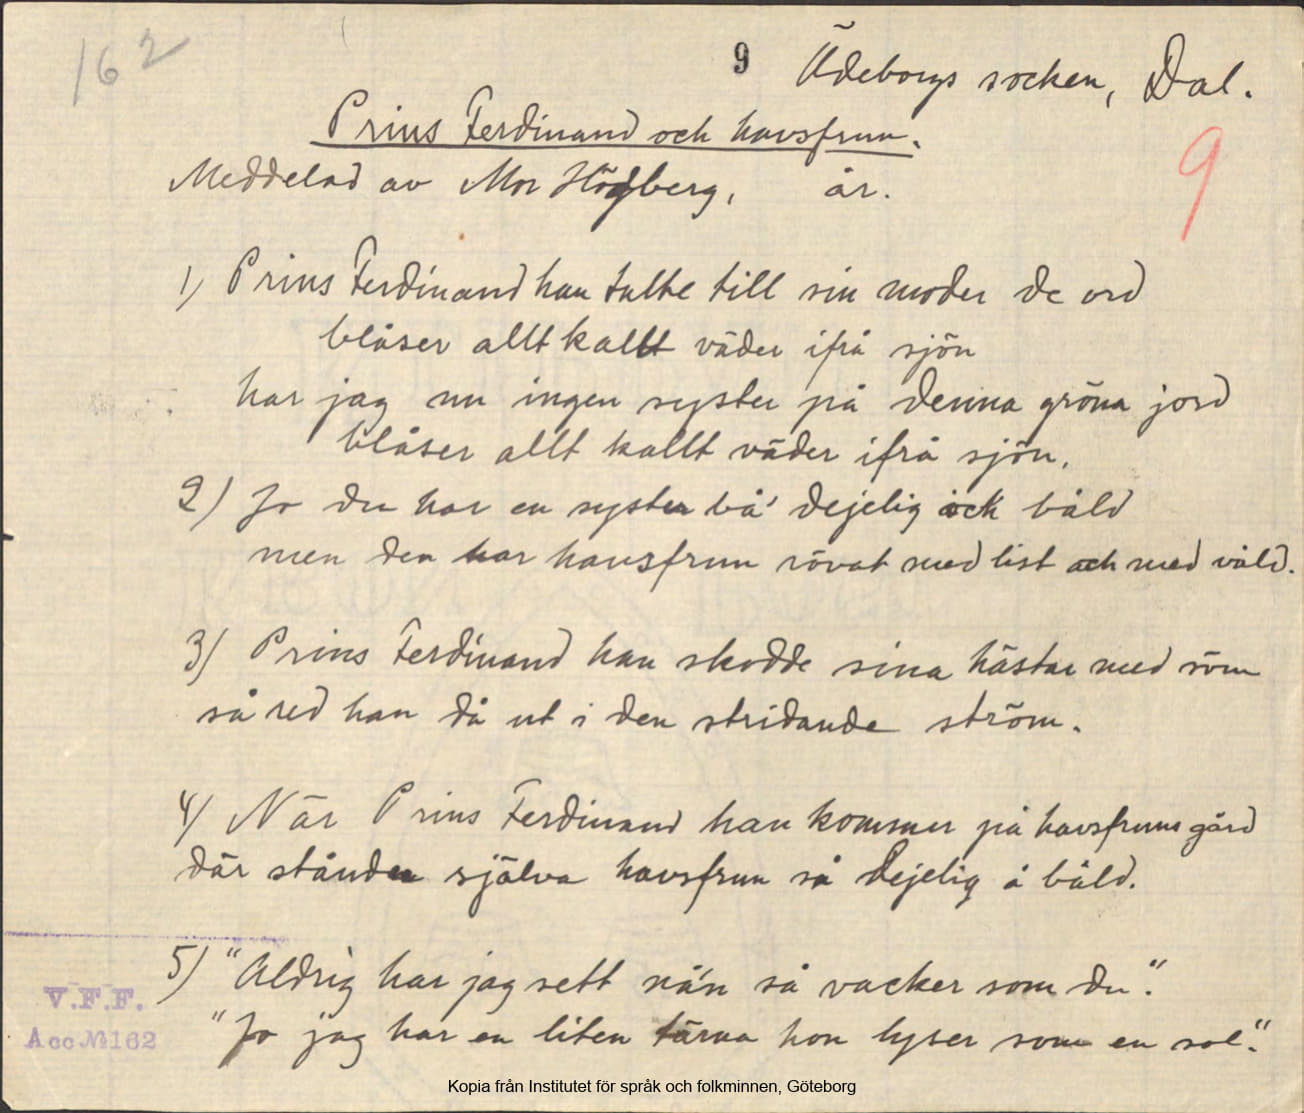 162
9 Ödeborgs socken, Dal.
Prins Ferdinand och havsfrun.
9
Meddelad av Mor Högberg, år.
1) Prins Ferdinand han talte till sin moder de ord
blåser allt kallt väder ifrå sjön
har jag nu ingen syster på denna gröna jord
blåser allt kallt väder ifrå sjön.
2) Jo du har en syster bå' dejelig och båld
men den har havsfrun rövat med list och med våld.
3) Prins Ferdinand han skodde sina hästar med söm
så red han då ut i den stridande ström.
4) När Prins Ferdinand han kommer på havsfruns gård
där stånder själva havsfrun så dejelig å båld.
5) "Aldrig har jag sett nå'n så vacker som du".
"Jo jag har en liten tärna hon lyser som en sol".
V.F.F.
Acc № 162
Kopia från Institutet för språk och folkminnen, Göteborg